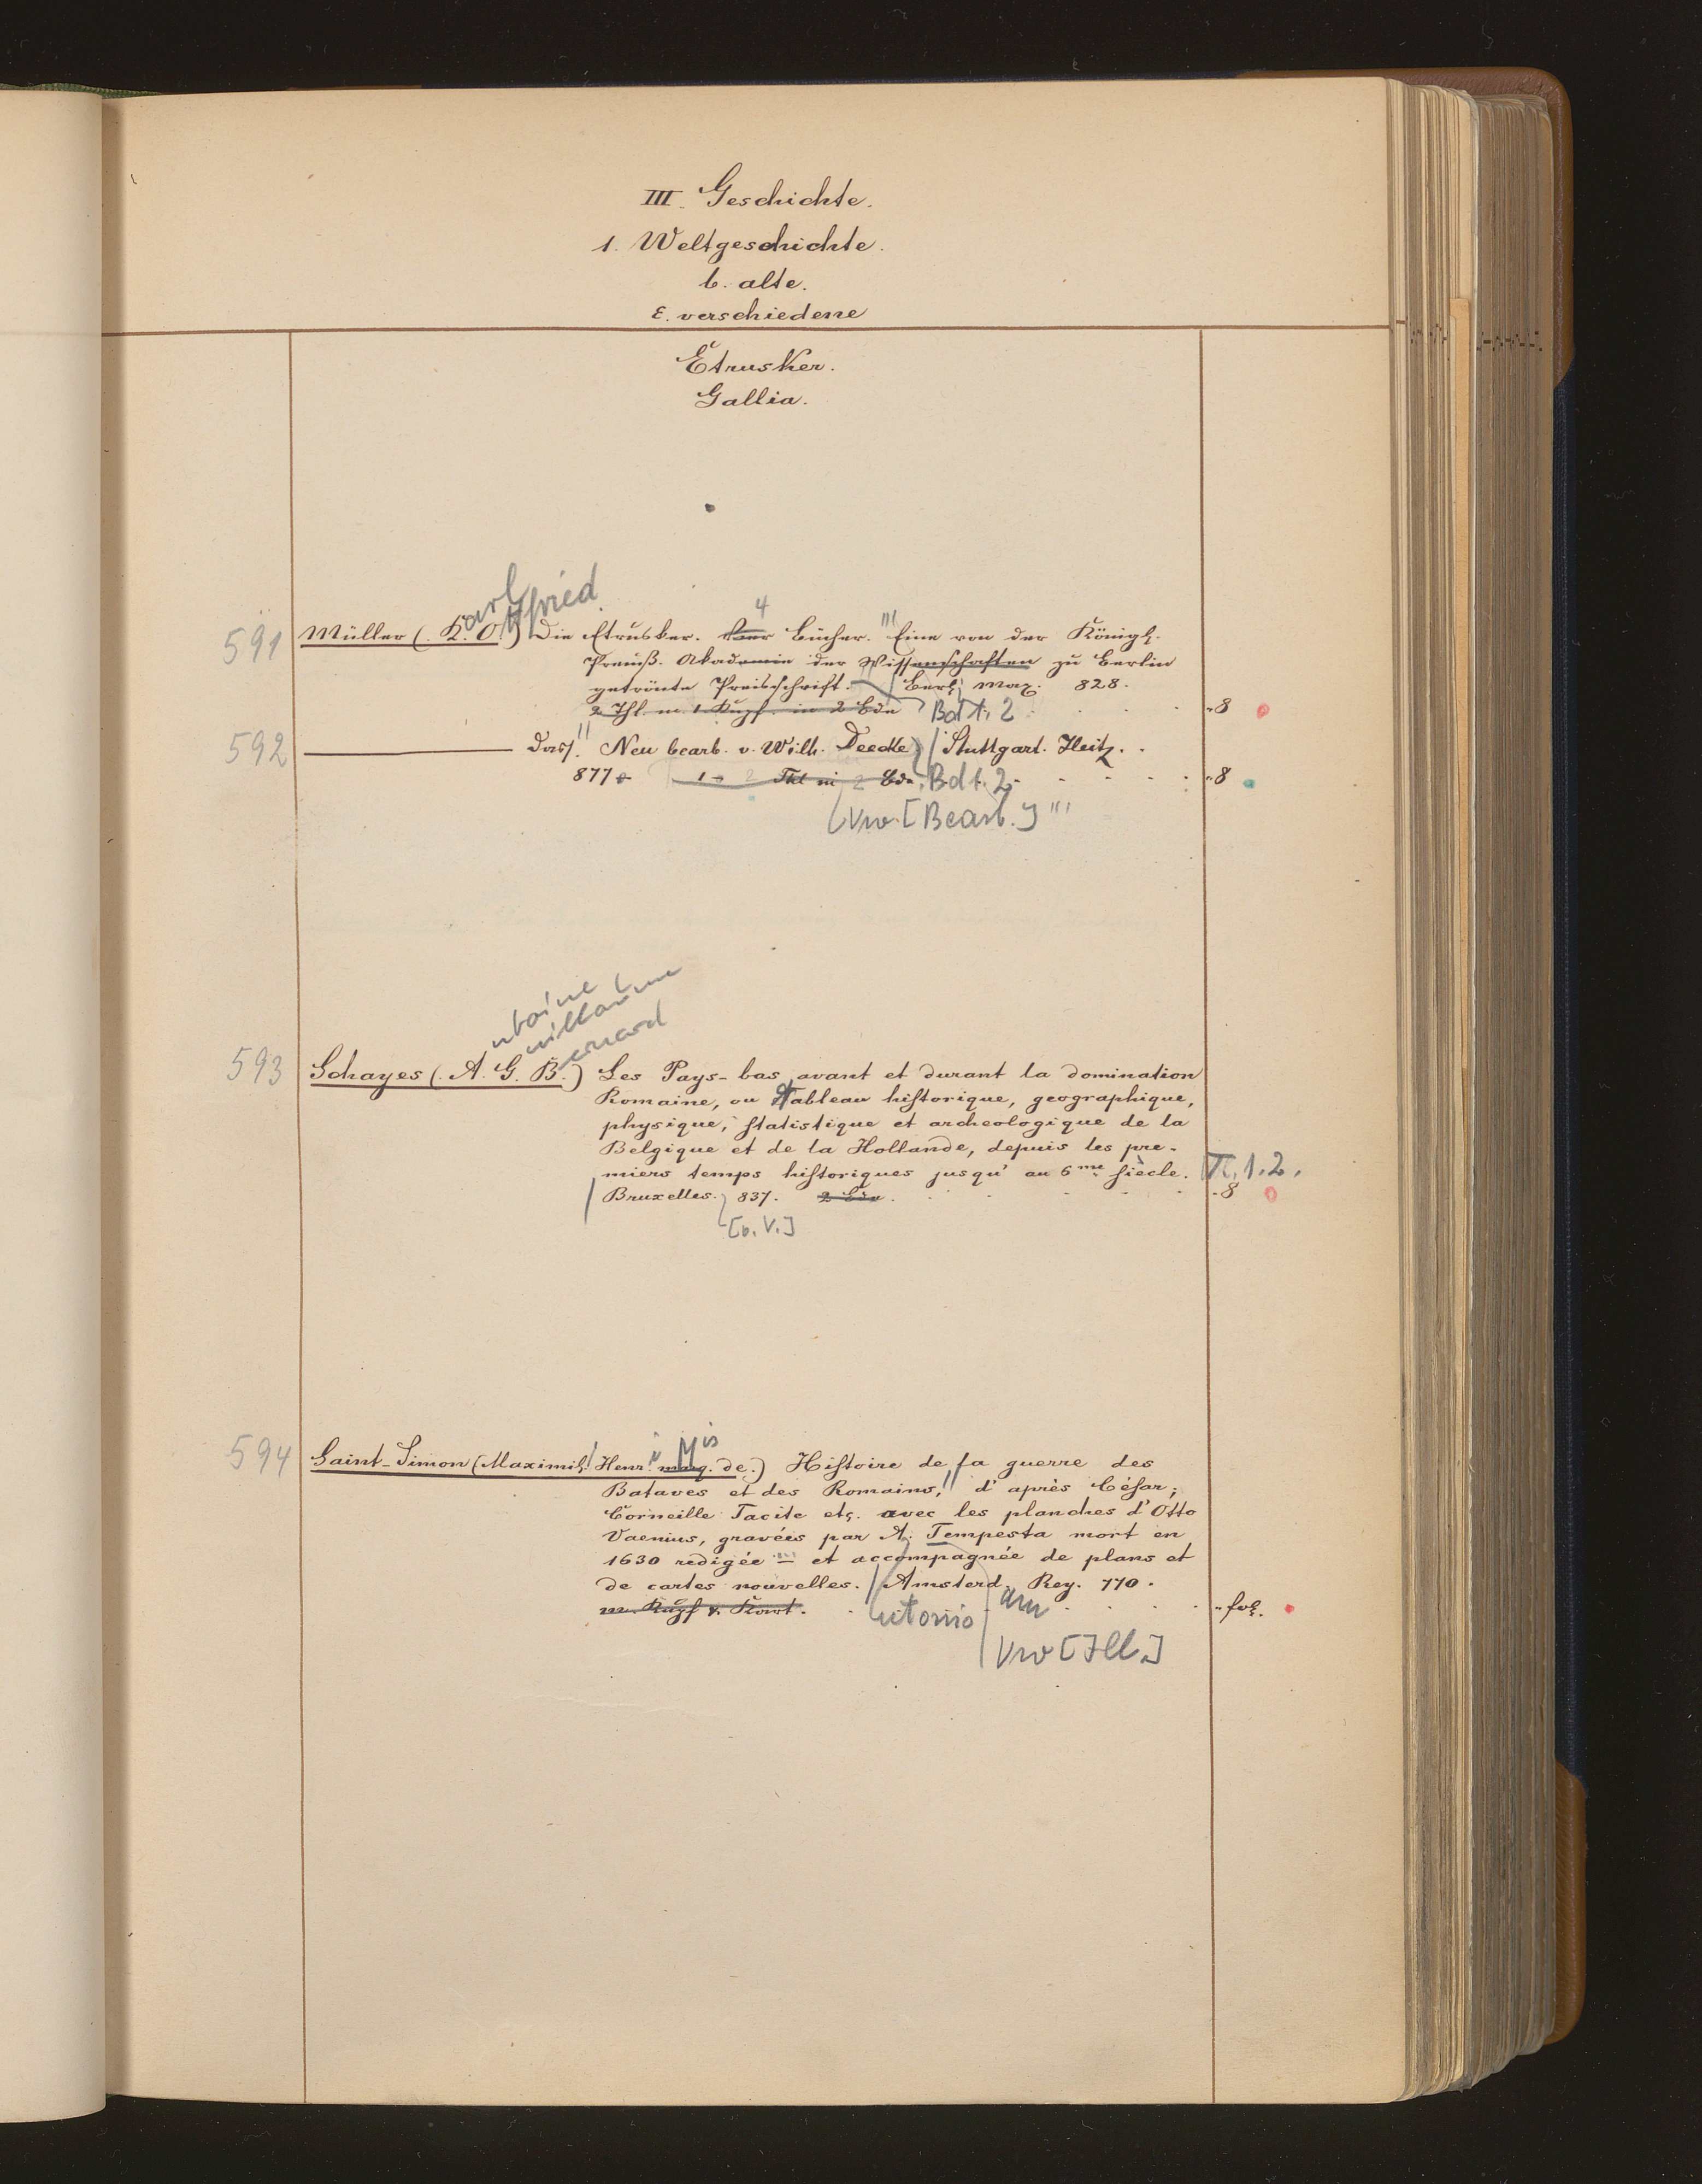 III. Geschichte.
1. Weltgeschichte.
b. alte.
ε. verschiedene
Etrusker.
Gallia.
arl tfried
4
591 Müller (K. O.) Die Etrusker. Vier Bücher. Eine von der Königl.
Preuß. Akademie der Wissenschaften zu Berlin
gekrönte Preisschrift. Berl. Max. 828.
2 Thl. m. 1 Kupf. in 2 Bdn Bd 1. 2 8
592 Dass. Neu bearb. v. Wilh. Deecke Stuttgart. Heitz.
877 1 - 2 Thl in 2 Bdn. Bd 1. 2 8
Vw. [Bearb.]
ntoine
uillaume
ernard
593 Schayes (A. G. B.) Les Pays-bas avant et durant la domination
Romaine, ou Tableau historique, geographique,
physique, statistique et archeologique de la
Belgique et de la Hollande, depuis les pre-
miers temps historiques jusqu' au 6me siècle. T. 1. 2.
Bruxelles. 837. 2 Bde. 8
[o. V.]
i Mis
594 Saint-Simon (Maximil. Henr. marq. de.) Histoire de la guerre des
Bataves et des Romains, d' après César,
Corneille Tacite etc. avec les planches d' Otto
Vaenius, gravées par A. Tempesta mort en
1630 redigée et accompagnée de plans et
de cartes nouvelles. Amsterd. Rey. 770.
m. Kupf. & Kart. ntonio am fol.
Vw [Ill.]